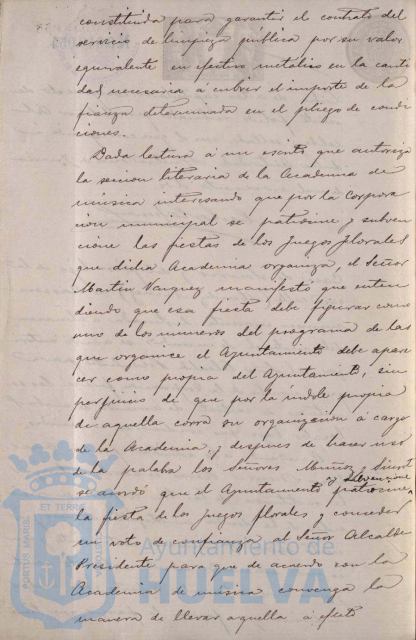 constituida para garantir el contrato del
servicio de limpieza pública por su valor
equivalente en efectivo metalico en la canti
dad necesaria a cubrir el importe de la
fianza determinada en el pliego de condi
ciones.
Dada lectura á un escrito que autoriza
la seccion literaria de la Academia de
música interesando que por la Corpora
cion municipal se patrocine y subven
cione las fiestas de los Juegos florales
que dicha Academia organiza, el Señor
Martin Vazquez manifestó que enten
diendo que esa fiesta debe figurar como
uno de los números del programa de las
que organice el Ayuntamiento debe apare
cer como propia del Ayuntamiento, sin
perjuicio de que por la índole propia
de aquella corra su organizacion á cargo
de la Academia, y despues de hacer uso
de la palabra los Señores Muñoz y
y subvencione
se acordó que el Ayuntamiento patrocine
la fiesta de los Juegos florales y conceder
un voto de confianza al Señor Alcalde
Presidente para que de acuerdo con la
Academia de música convenga la
manera de llevar aquella á efecto
PORTUS MARIS
ET TERRAE
Ayuntamiento de
HUELVA